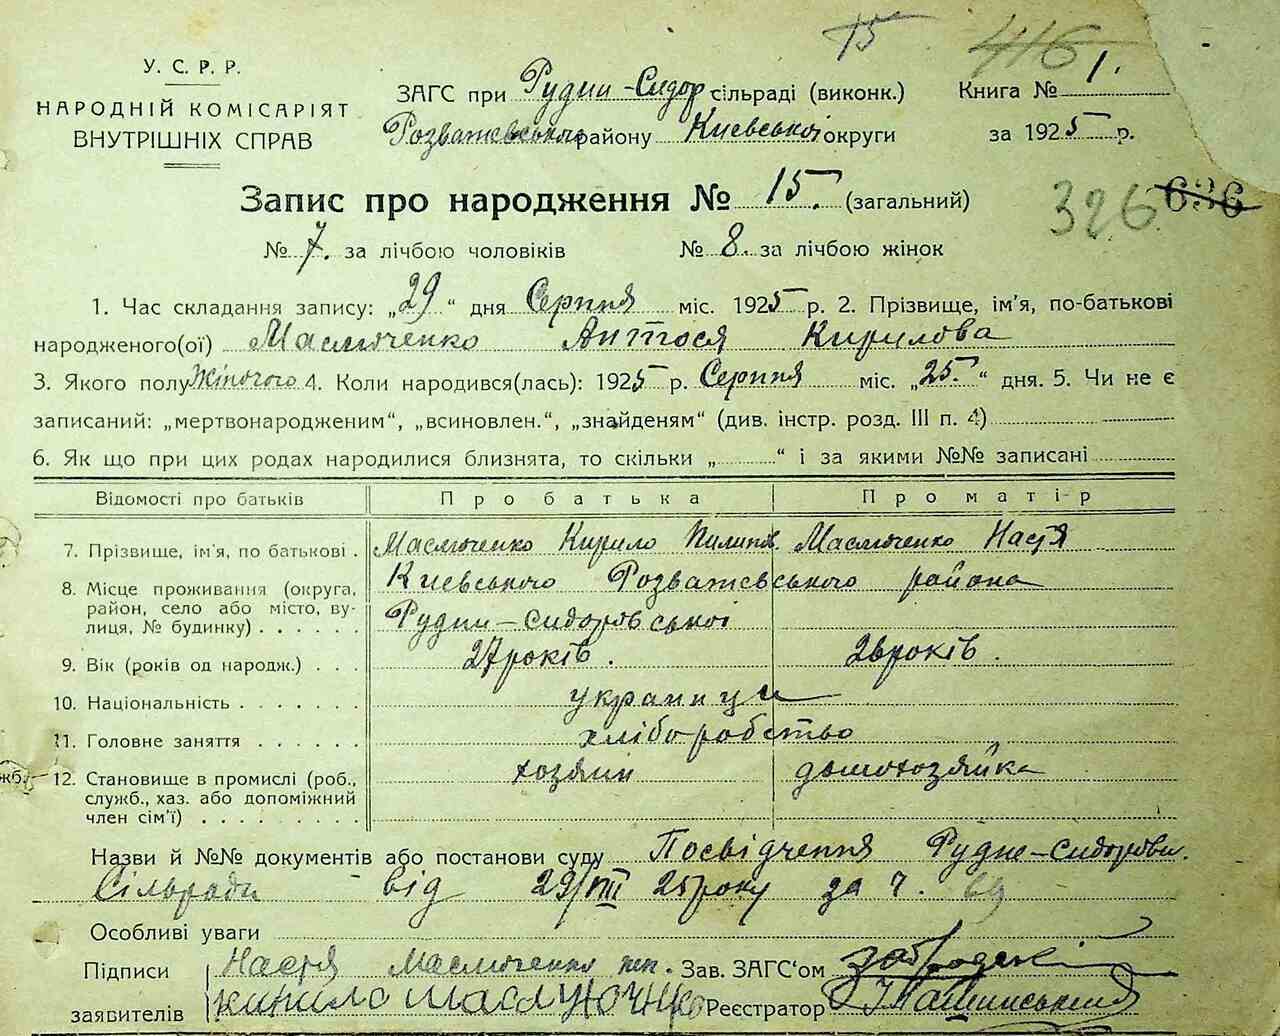 15 416
У. С. Р. Р.
НАРОДНІЙ КОМІСАРІЯТ
ВНУТРІШНІХ СПРАВ
ЗАГС при Рудни-Сидор сільраді (виконк.) Книга № 1.
Розважевського району Киевської округи за 1925 р.
Запис про народження № 15. (загальний)
326 636
№ 7. за лічбою чоловіків № 8. за лічбою жінок
1. Час складання запису: „29“ дня Серпня міс. 1925 р. 2. Прізвище, ім'я, по-батькові
народженого(ої) Маслюченко Антося Кирилова
3. Якого полу Жіночого 4. Коли народився(лась): 1925 р. Серпня міс. „25.“ дня. 5. Чи не є
записаний: „мертвонародженим“, „всиновлен.“, „знайденям“ (див. інстр. розд. III п. 4)
6. Як що при цих родах народилися близнята, то скільки „ “ і за якими №№ записані
Відомості про батьків Про батька Про матір
7. Прізвище, ім'я, по батькові . Маслюченко Кирило Пилипов. Маслюченко Настя
8. Місце проживання (округа, район, село або місто, вулиця, № будинку) . . . . . . Киевського Розважевського района
Рудни-сидоровської
9. Вік (років од народж.) . . . 27 років. 26 років.
10. Національність . . . . . . . украинци
11. Головне заняття . . . . . . хліборобство
жб.
12. Становище в промислі (роб., служб., хаз. або допоміжний член сім'ї) . . . . . . . . . хозяин домохозяйка
Назви й №№ документів або постанови суду Посвідчення Рудне-сидоровск.
Сільради від 29/VIII 25 року за ч. 69
Особливі уваги
Підписи Настя Маслюченко Зав. ЗАГС'ом
заявителів кирило Реєстратор